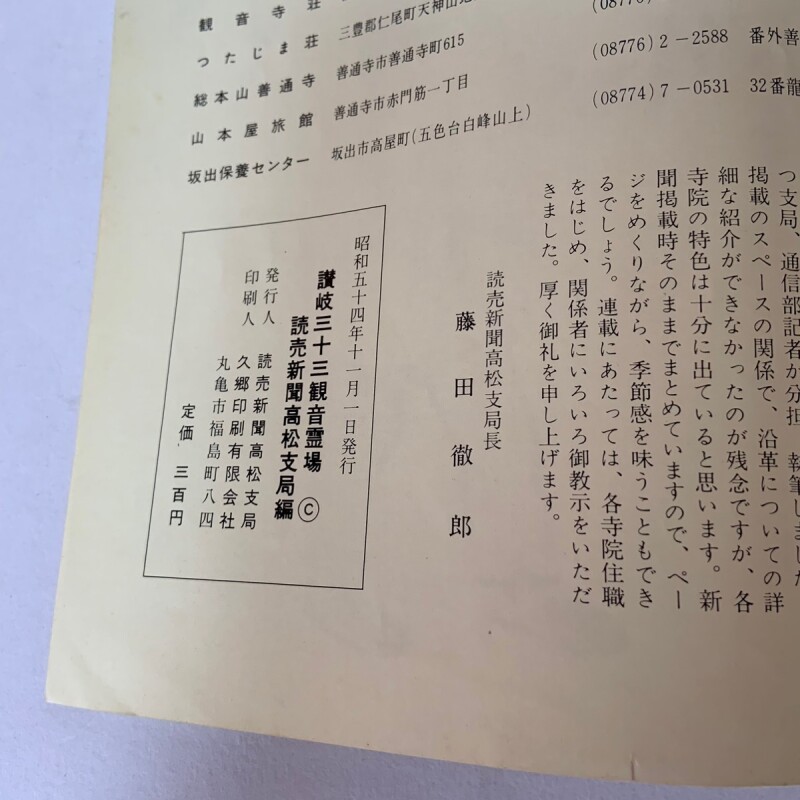 観音寺荘
三豊郡仁尾町天神山
つたじま荘
総本山善通寺 善通寺市善通寺町615 (08776)2-2588 番外善
山本屋旅館 善通寺市赤門筋一丁目 (08774)7-0531 32番龍
坂出保養センター 坂出市高屋町(五色台白峰山上)
つ支局、通信部記者が分担、執筆しました
掲載のスペースの関係で、沿革についての詳
細な紹介ができなかったのが残念ですが、各
寺院の特色は十分に出ていると思います。新
聞掲載時そのままでまとめていますので、ペー
ジをめくりながら、季節感を味うこともでき
るでしょう。連載にあたっては、各寺院住職
をはじめ、関係者にいろいろ御教示をいただ
きました。厚く御礼を申し上げます。
読売新聞高松支局長
藤田徹郎
昭和五十四年十一月一日発行
讃岐三十三観音霊場 ©
読売新聞高松支局編
発行人 読売新聞高松支局
印刷人 久郷印刷有限会社
丸亀市福島町八四
定価 三百円